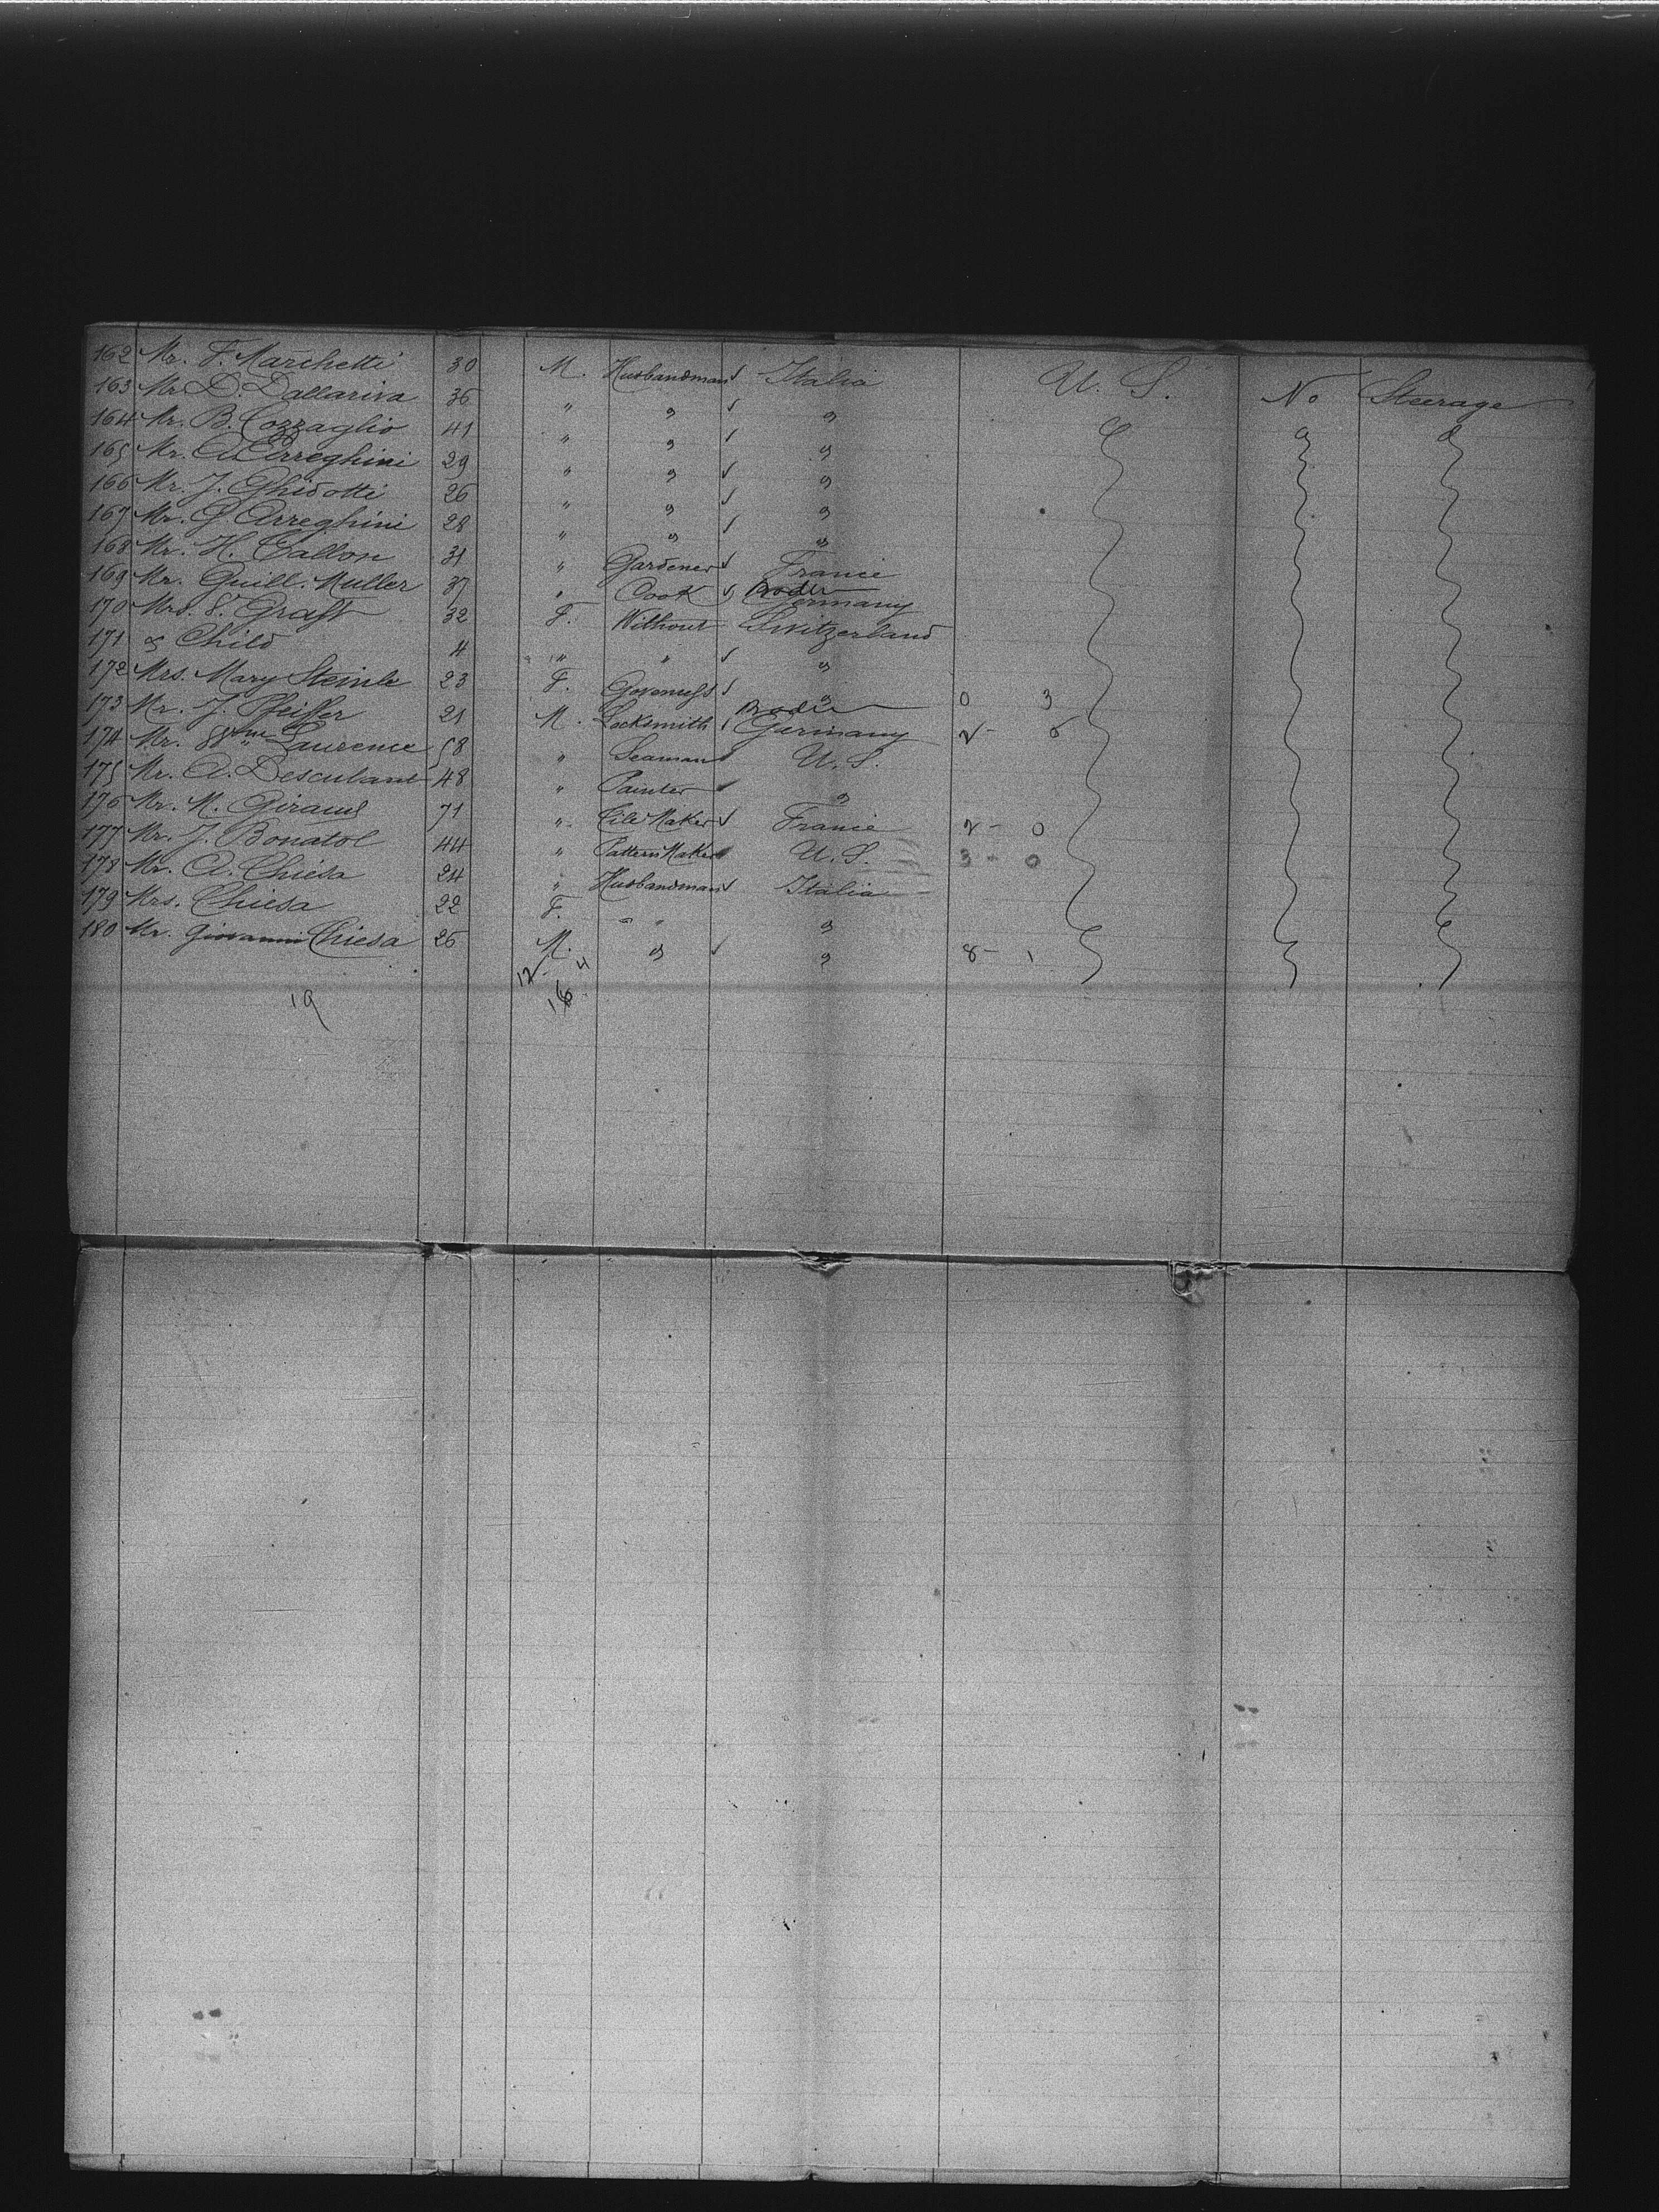 162 Mr. F. Marchetti 30 M. Husbandman ✓ Italia U. S. No Steerage
163 Mr. D. Dallariva 36 " " ✓ "
164 Mr. B. Cozzaglio 41 " " ✓ "
165 Mr. A. Erreghini 29 " " ✓ "
166 Mr. J. Ghidotti 26 " " ✓ "
167 Mr. G. Arreghini 28 " " ✓ "
168 Mr. H. Gallon 31 " Gardener ✓ France
169 Mr. Guill. Muller 37 " Cook ✓ Baden Germany
170 Mrs. S. Graff 32 F. Without Switzerland
171 & Child 4 " " ✓ "
172 Mrs. Mary Steinle 23 F. Governess ✓ " 0 3
173 Mr. J. Pfeiffer 21 M. Locksmith ✓ Baden Germany 2 - 6
174 Mr. Wm Laurence 58 " Seaman ✓ U. S.
175 Mr. A. Desculant 48 " Painter ✓ "
176 Mr. M. Giraud 71 " Maker ✓ France 2 - 0
177 Mr. J. Bonatol 44 " Pattern Maker U. S. 3 - 0
178 Mr. A. Chiesa 24 " Husbandman ✓ Italia
179 Mrs. Chiesa 22 F. " " "
180 Mr. Giovanni Chiesa 26 M. " ✓ " 8 - 1
12 - 4
19 16